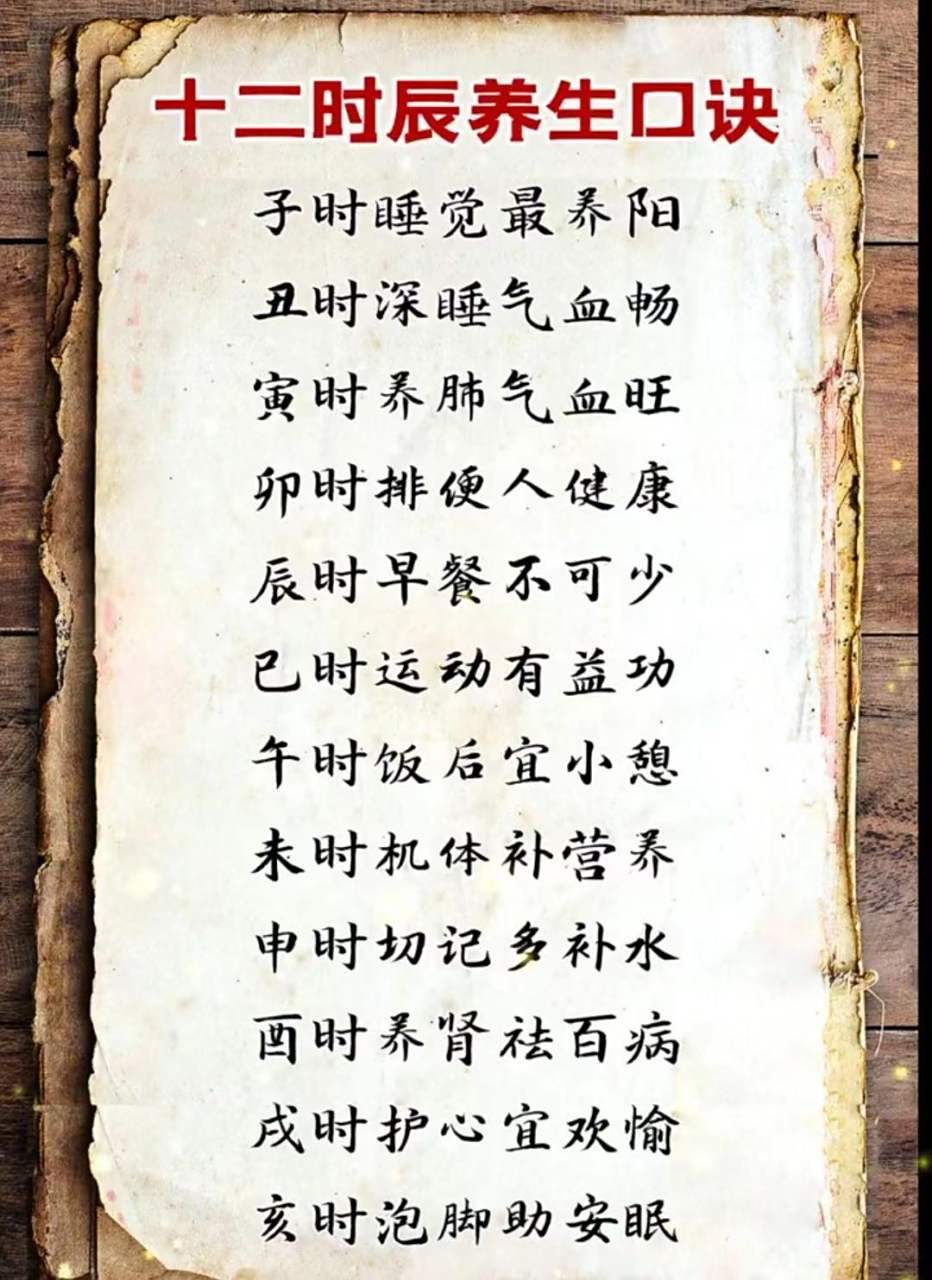 十二时辰养生口诀
子时睡觉最养阳
丑时深睡气血畅
寅时养肺气血旺
卯时排便人健康
辰时早餐不可少
巳时运动有益功
午时饭后宜小憩
未时机体补营养
申时切记多补水
酉时养肾祛百病
戌时护心宜欢愉
亥时泡脚助安眠